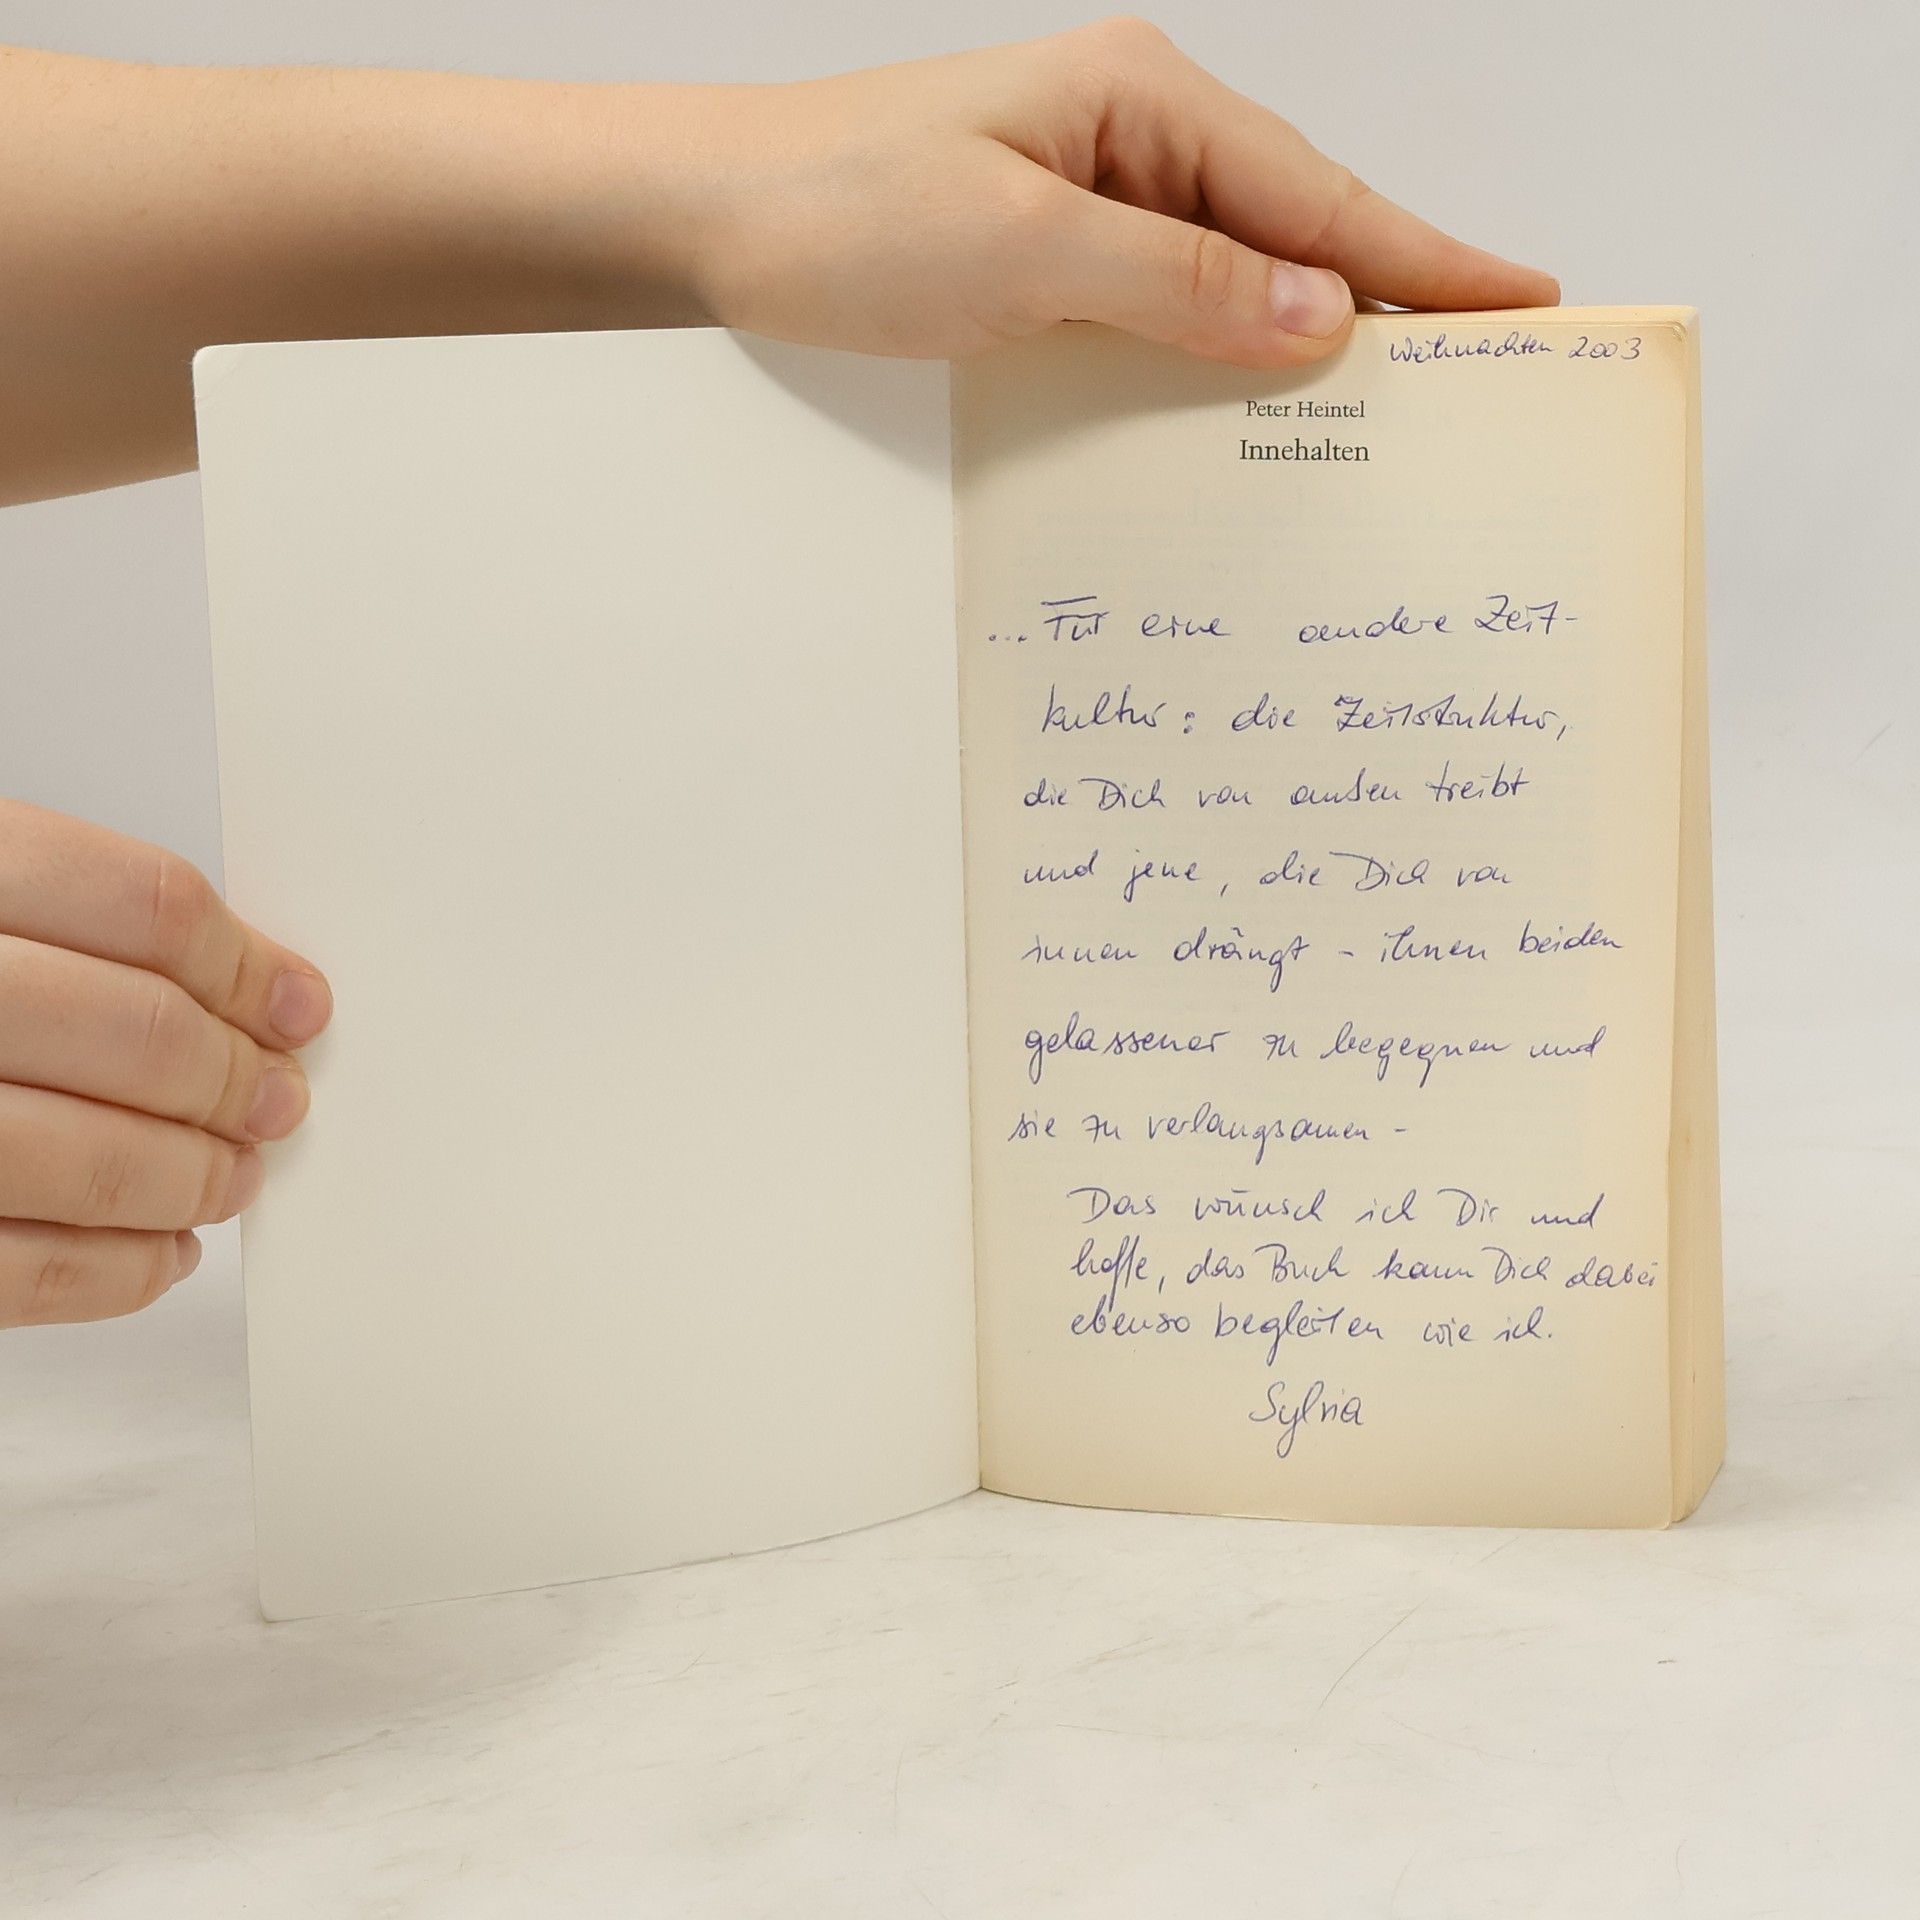 Weihnachten 2003
Peter Heintel
Innehalten
... Für eine andere Zeit-
kultur: die Zeitstruktur,
die Dich von außen treibt
und jene, die Dich von
innen drängt - ihnen beiden
gelassener zu begegnen und
sie zu verlangsamen -
Das wünsch ich Dir und
hoffe, das Buch kann Dich dabei
ebenso begleiten wie ich.
Sylvia